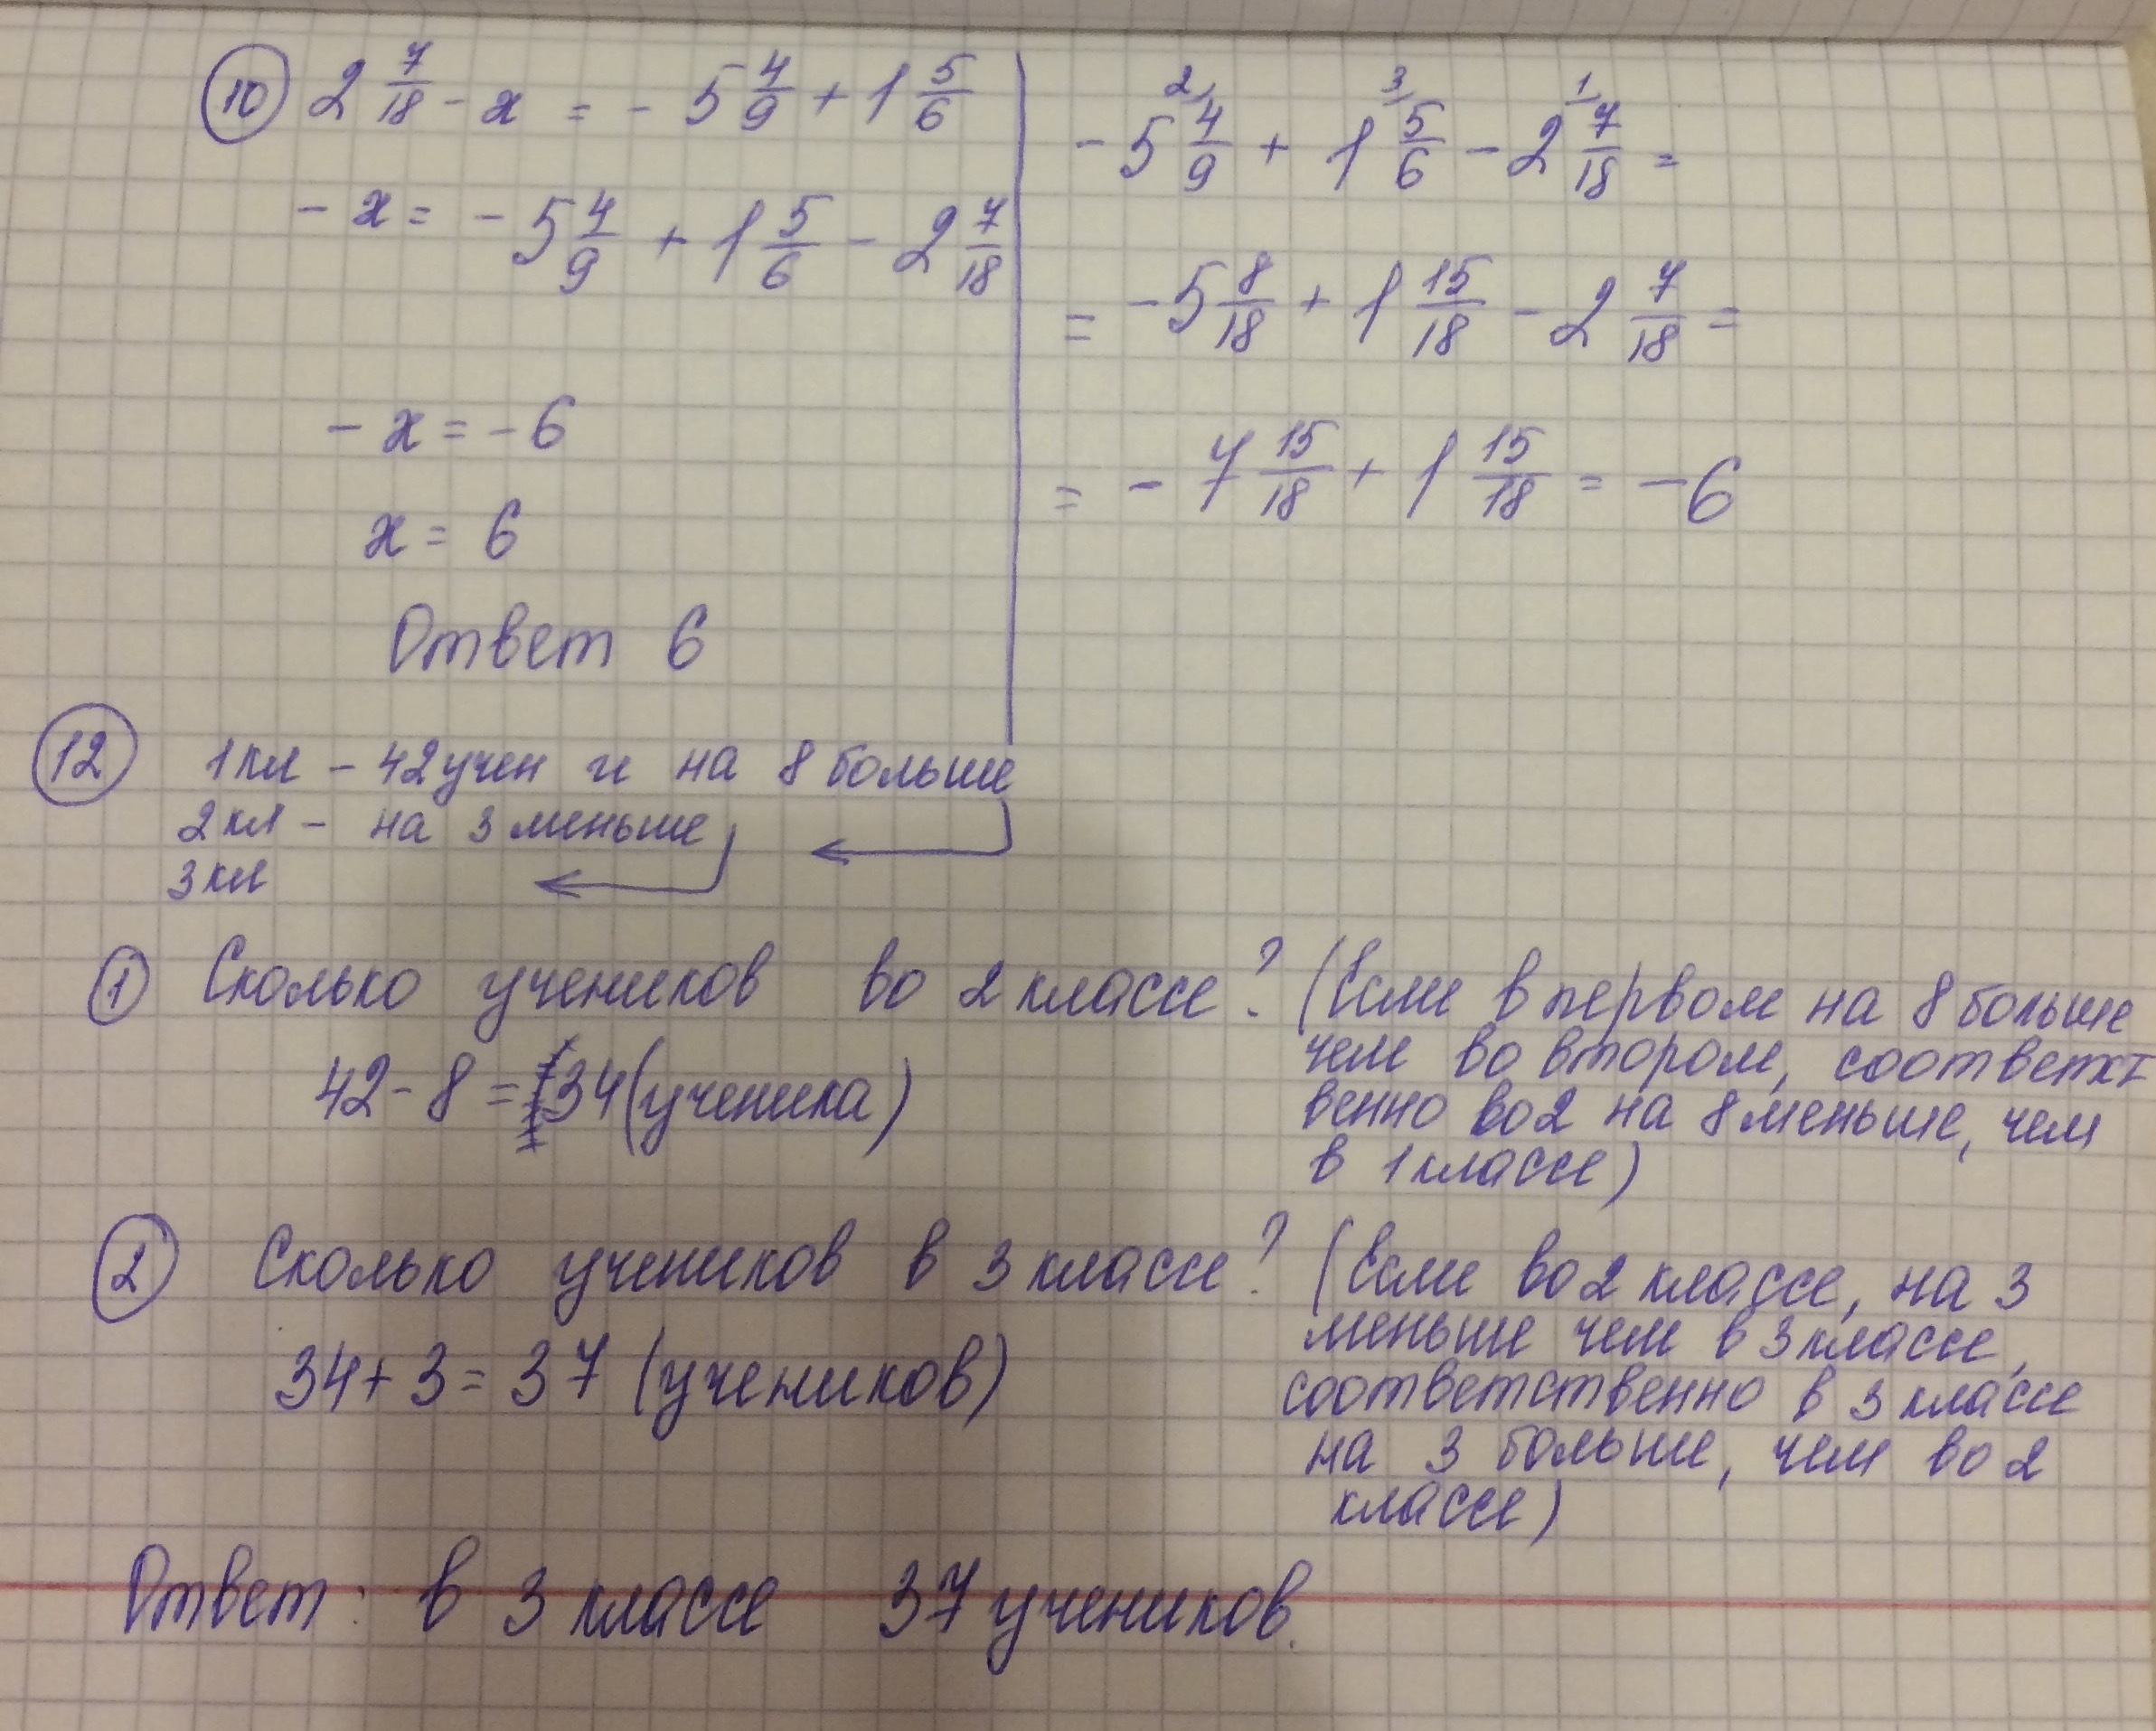 10 2 7/18 - x = - 5 4/9 + 1 5/6
- x = - 5 4/9 + 1 5/6 - 2 7/18
- x = - 6
x = 6
Ответ 6
2 3 1
- 5 4/9 + 1 5/6 - 2 7/18 =
= - 5 8/18 + 1 15/18 - 2 7/18 =
= - 7 15/18 + 1 15/18 = - 6
12 1 кл - 42 учен и на 8 больше
2 кл - на 3 меньше
3 кл
1 Сколько учеников во 2 классе?
42 - 8 = 34 (ученика)
(Если в первом на 8 больше
чем во втором, соответст
венно во 2 на 8 меньше, чем
в 1 классе)
2 Сколько учеников в 3 классе?
34 + 3 = 37 (учеников)
(Если во 2 классе, на 3
меньше чем в 3 классе,
соответственно в 3 классе
на 3 больше, чем во 2
классе)
Ответ: в 3 классе 37 учеников.